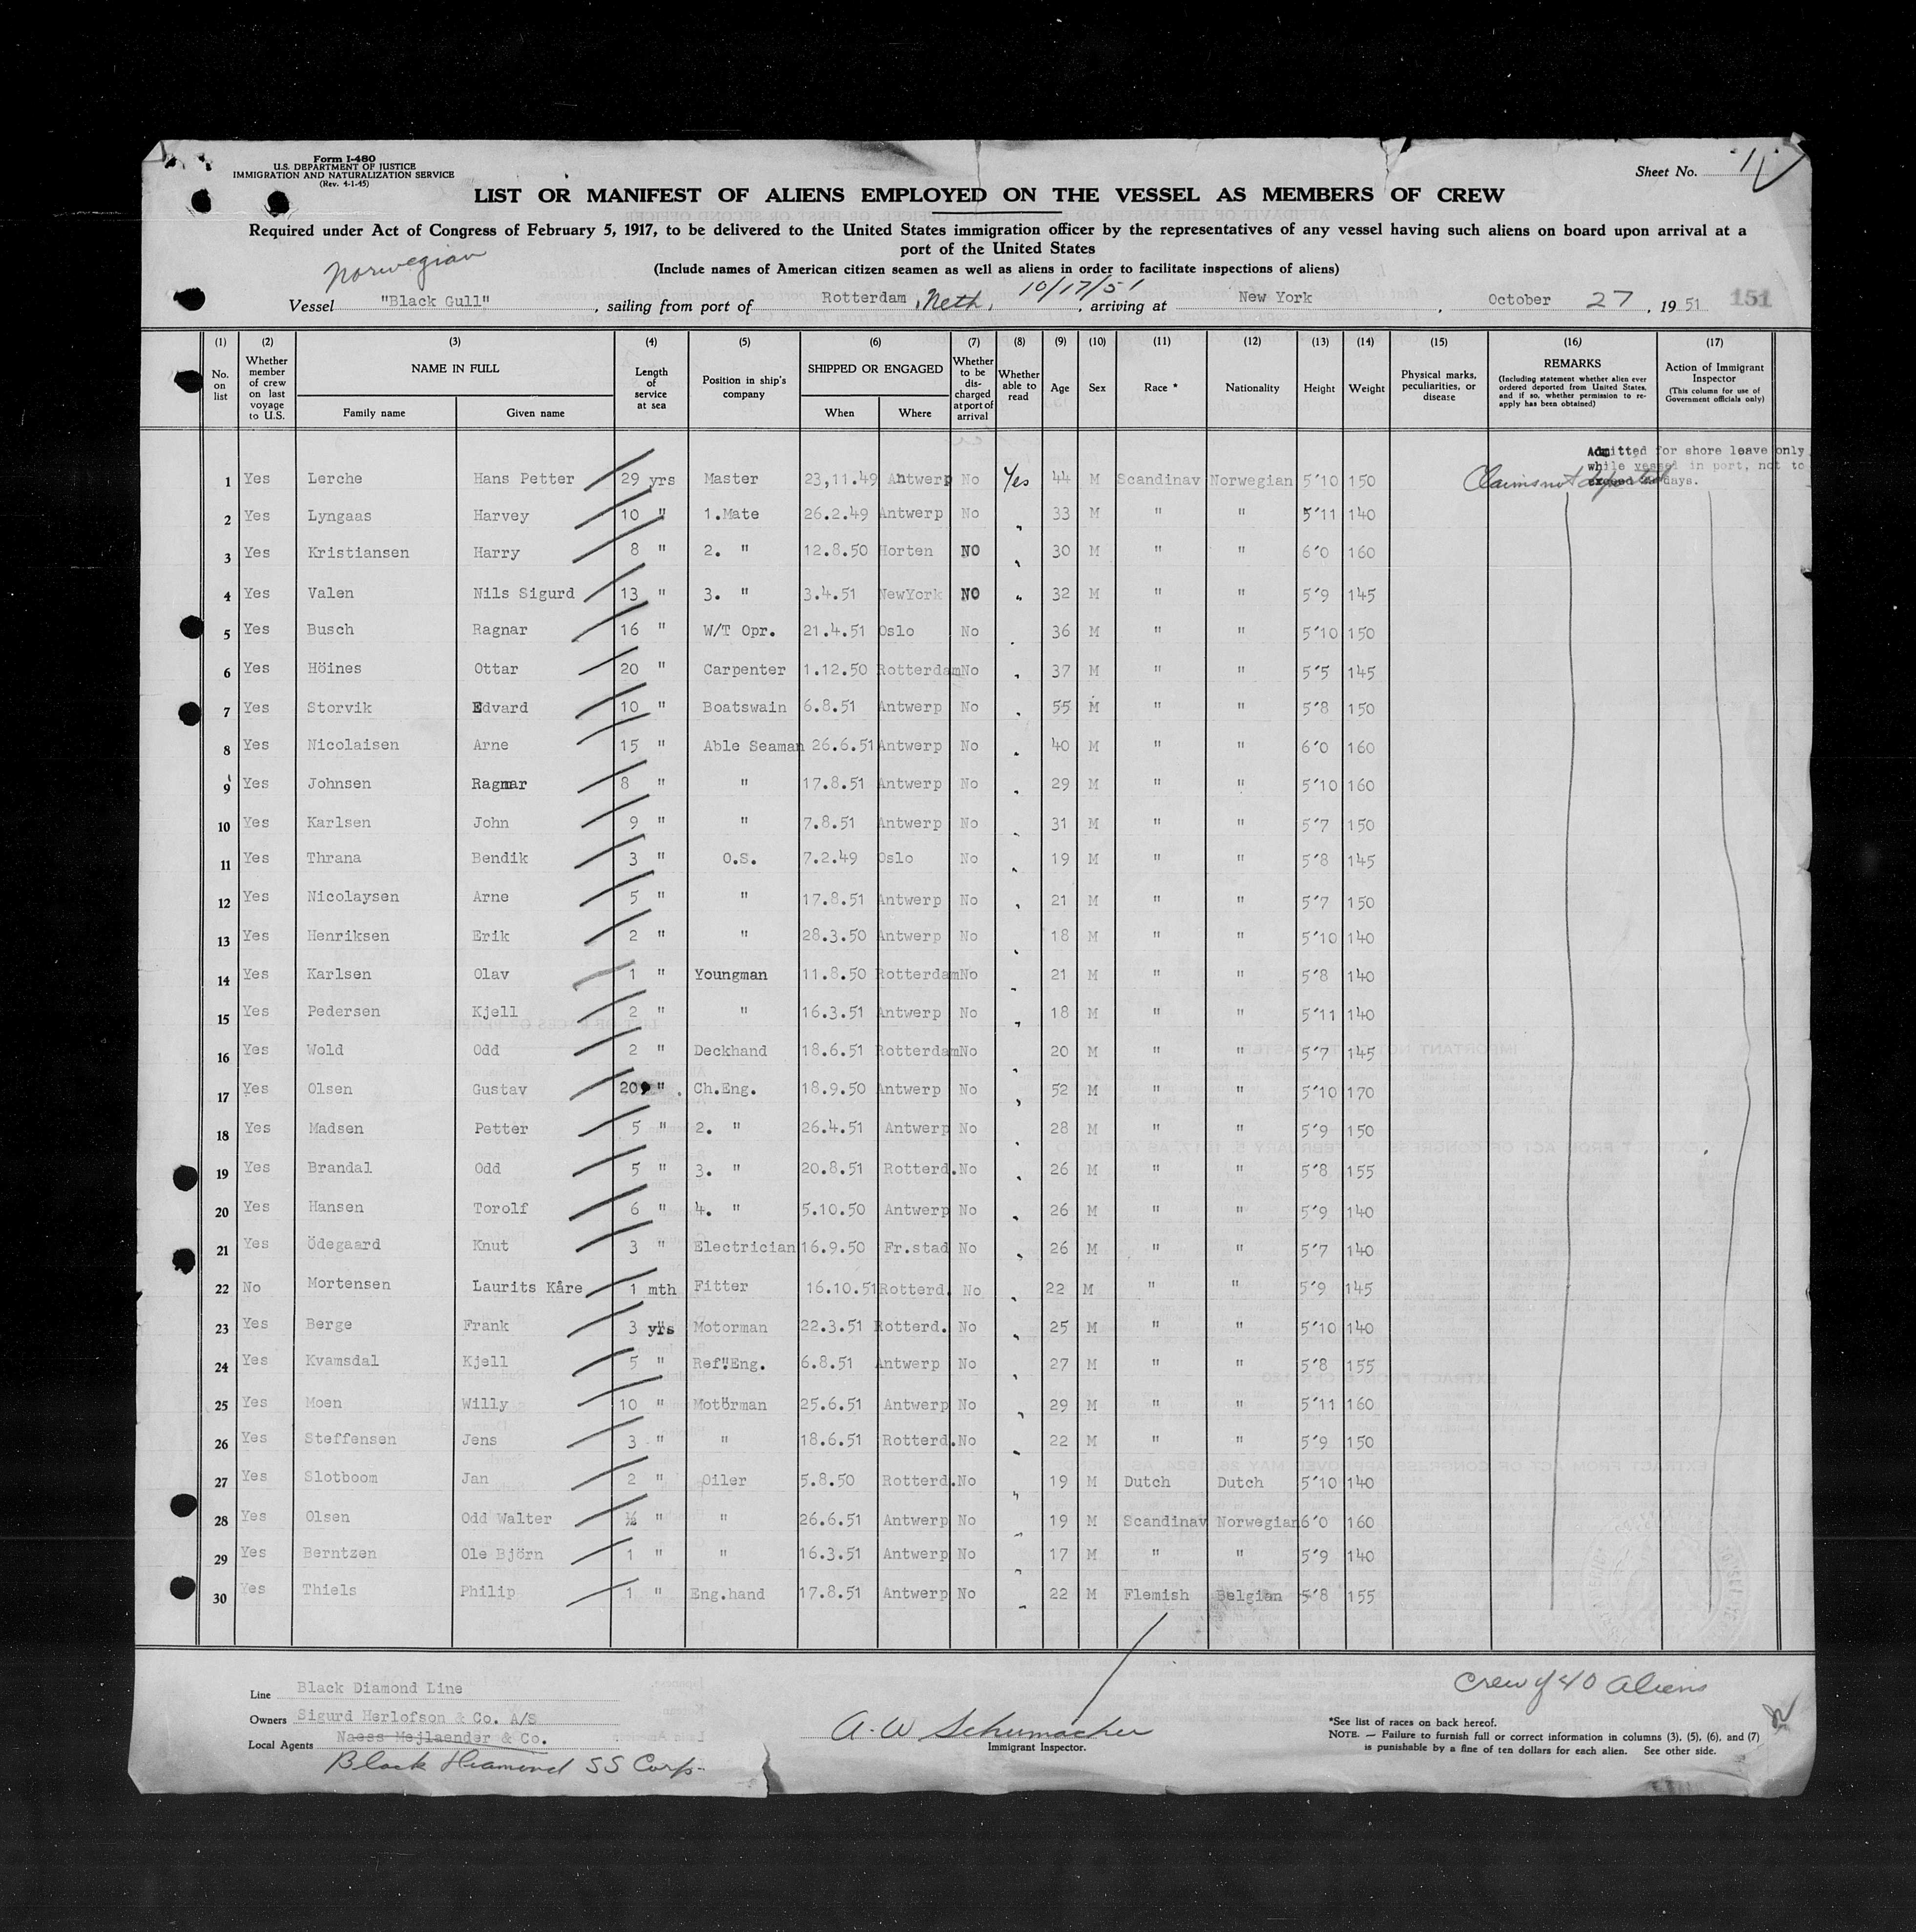 Form I-480
U.S. DEPARTMENT OF JUSTICE
IMMIGRATION AND NATURALIZATION SERVICE
(Rev. 4-1-45)
Sheet No. 1
LIST OR MANIFEST OF ALIENS EMPLOYED ON THE VESSEL AS MEMBERS OF CREW
Required under Act of Congress of February 5, 1917, to be delivered to the United States immigration officer by the representatives of any vessel having such aliens on board upon arrival at a
port of the United States
(Include names of American citizen seamen as well as aliens in order to facilitate inspections of aliens)
Norwegian
Vessel "Black Gull", sailing from port of Rotterdam, Neth, 10/17/51, arriving at New York, October 27, 1951 151
(1) (2) (3) (4) (5) (6) (7) (8) (9) (10) (11) (12) (13) (14) (15) (16) (17)
No. on list
Whether member of crew on last voyage to U.S.
NAME IN FULL
Family name Given name
Length of service at sea
Position in ship's company
SHIPPED OR ENGAGED
When Where
Whether to be discharged at port of arrival
Whether able to read
Age
Sex
Race *
Nationality
Height
Weight
Physical marks, peculiarities, or disease
REMARKS
(Including statement whether alien ever ordered deported from United States, and if so, whether permission to reapply has been obtained)
Action of Immigrant Inspector
(This column for use of Government officials only)
Admitted for shore leave only
while vessel in port, not to
exceed days.
1 Yes Lerche Hans Petter 29 yrs Master 23,11.49 Antwerp No Yes 44 M Scandinav Norwegian 5'10 150 Claims not deported
2 Yes Lyngaas Harvey 10 " 1.Mate 26.2.49 Antwerp No " 33 M " " 5'11 140
3 Yes Kristiansen Harry 8 " 2. " 12.8.50 Horten NO " 30 M " " 6'0 160
4 Yes Valen Nils Sigurd 13 " 3. " 3.4.51 NewYork NO " 32 M " " 5'9 145
5 Yes Busch Ragnar 16 " W/T Opr. 21.4.51 Oslo No " 36 M " " 5'10 150
6 Yes Höines Ottar 20 " Carpenter 1.12.50 Rotterdam No " 37 M " " 5'5 145
7 Yes Storvik Edvard 10 " Boatswain 6.8.51 Antwerp No " 55 M " " 5'8 150
8 Yes Nicolaisen Arne 15 " Able Seaman 26.6.51 Antwerp No " 40 M " " 6'0 160
9 Yes Johnsen Ragnar 8 " " 17.8.51 Antwerp No " 29 M " " 5'10 160
10 Yes Karlsen John 9 " " 7.8.51 Antwerp No " 31 M " " 5'7 150
11 Yes Thrana Bendik 3 " O.S. 7.2.49 Oslo No " 19 M " " 5'8 145
12 Yes Nicolaysen Arne 5 " " 17.8.51 Antwerp No " 21 M " " 5'7 150
13 Yes Henriksen Erik 2 " " 28.3.50 Antwerp No " 18 M " " 5'10 140
14 Yes Karlsen Olav 1 " Youngman 11.8.50 Rotterdam No " 21 M " " 5'8 140
15 Yes Pedersen Kjell 2 " " 16.3.51 Antwerp No " 18 M " " 5'11 140
16 Yes Wold Odd 2 " Deckhand 18.6.51 Rotterdam No " 20 M " " 5'7 145
17 Yes Olsen Gustav 20 " Ch.Eng. 18.9.50 Antwerp No " 52 M " " 5'10 170
18 Yes Madsen Petter 5 " 2. " 26.4.51 Antwerp No " 28 M " " 5'9 150
19 Yes Brandal Odd 5 " 3. " 20.8.51 Rotterd. No " 26 M " " 5'8 155
20 Yes Hansen Torolf 6 " 4. " 5.10.50 Antwerp No " 26 M " " 5'9 140
21 Yes Ödegaard Knut 3 " Electrician 16.9.50 Fr.stad No " 26 M " " 5'7 140
22 No Mortensen Laurits Kåre 1 mth Fitter 16.10.51 Rotterd. No " 22 M " " 5'9 145
23 Yes Berge Frank 3 yrs Motorman 22.3.51 Rotterd. No " 25 M " " 5'10 140
24 Yes Kvamsdal Kjell 5 " Ref.Eng. 6.8.51 Antwerp No " 27 M " " 5'8 155
25 Yes Moen Willy 10 " Motörman 25.6.51 Antwerp No " 29 M " " 5'11 160
26 Yes Steffensen Jens 3 " " 18.6.51 Rotterd. No " 22 M " " 5'9 150
27 Yes Slotboom Jan 2 " Oiler 5.8.50 Rotterd. No " 19 M Dutch Dutch 5'10 140
28 Yes Olsen Odd Walter ½ " " 26.6.51 Antwerp No " 19 M Scandinav Norwegian 6'0 160
29 Yes Berntzen Ole Björn 1 " " 16.3.51 Antwerp No " 17 M " " 5'9 140
30 Yes Thiels Philip 1 " Eng.hand 17.8.51 Antwerp No " 22 M Flemish Belgian 5'8 155
Line Black Diamond Line
Owners Sigurd Herlofson & Co. A/S
Local Agents Naess Mejlaender & Co.
Black Diamond SS Corp.
A. W Schumacher
Immigrant Inspector.
Crew of 40 Aliens
*See list of races on back hereof.
NOTE. — Failure to furnish full or correct information in columns (3), (5), (6), and (7)
is punishable by a fine of ten dollars for each alien. See other side.